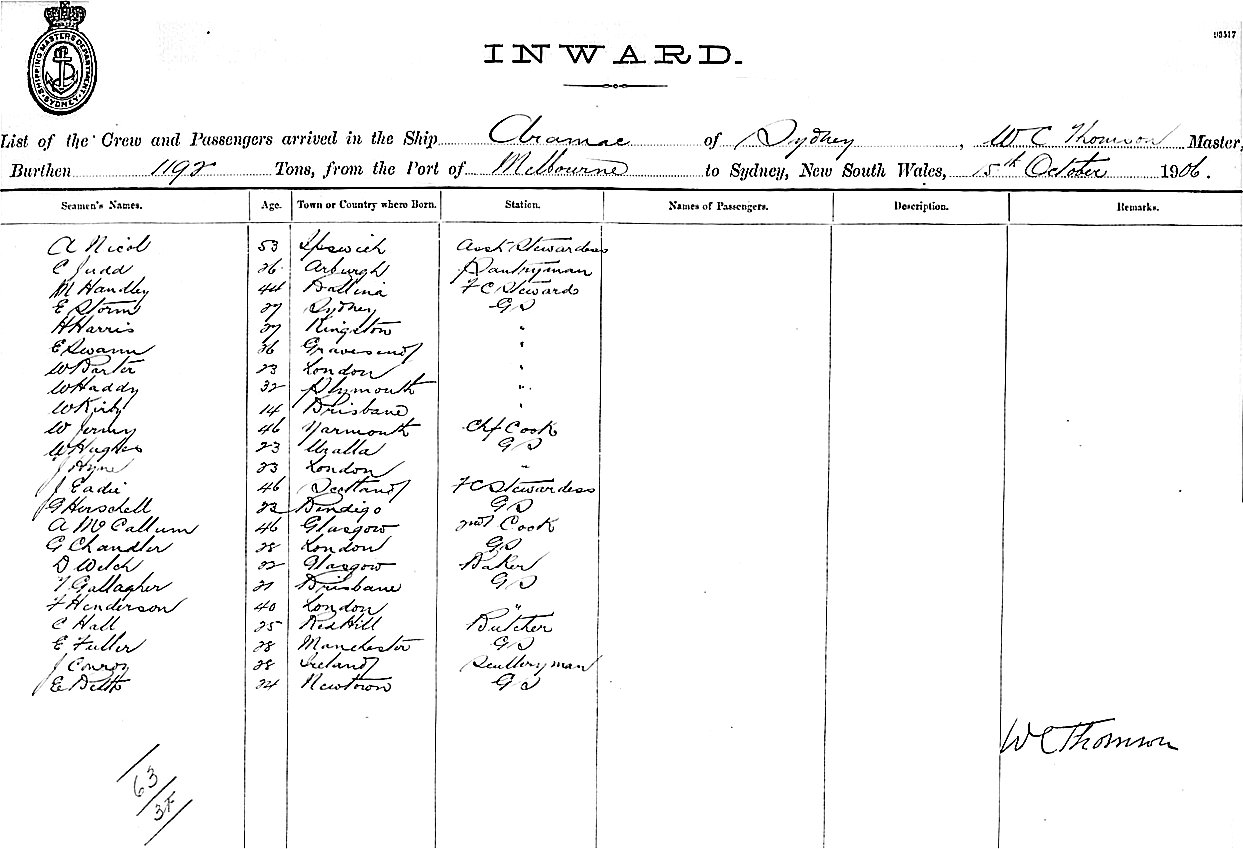 SHIPPING MASTERS DEPARTMENT SYDNEY
INWARD.
List of the Crew and Passengers arrived in the Ship Aramac of Sydney, W C Thomson Master,
Burthen 1192 Tons, from the Port of Melbourne to Sydney, New South Wales, 15th October 1906.
Seamen's Names. Age. Town or Country where Born. Station. Names of Passengers. Description. Remarks.
A Nicol 53 Ipswich Asst Stewardess
C Judd 26 Pantryman
M Handley 44 Ballina F C Stewards
E Storm 27 Sydney G S
H Harris 27 Kingston "
E Swann 26 Gravesend "
W Barter 23 London "
W Haddy 32 Plymouth "
W Kirby 14 Brisbane "
W Jermy 46 Yarmouth Chf Cook
W Hughes 23 Uralla G S
J Hyne 23 London "
J Eadie 46 Scotland F C Stewardess
G Herschell 22 Bendigo G S
A McCallum 46 Glasgow 2nd Cook
G Chandler 28 London G S
D Welch 22 Glasgow Baker
T Gallagher 21 Brisbane G S
F Henderson 40 London "
C Hall 25 Red Hill Butcher
E Fuller 28 Manchester G S
J Conroy 28 Ireland Sculleryman
E 24 Newtown G S
W C Thomson
63